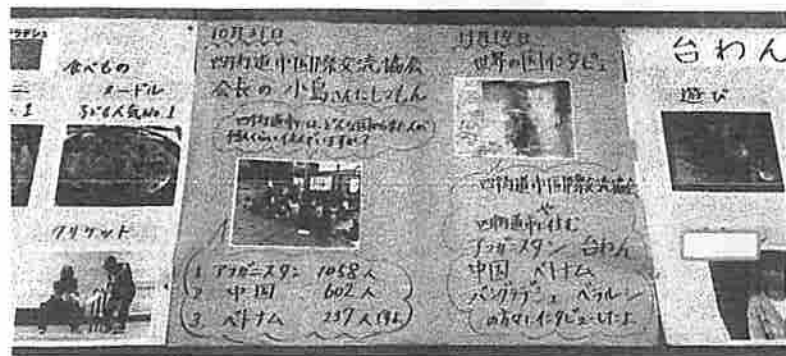 ラデシュ
No.1
食べもの
ヌードル
子ども人気No.1
クリケット
10月31日
四街道市国際交流協会
会長の小島さんにしつもん
四街道市には、どんな国から来た人が
住んでいますか?
1 アフガニスタン 1058人
2 中国 602人
3 ベトナム 237人
11月14日
世界の国インタビュー
四街道市国際交流協会
や
四街道市に住む
アフガニスタン 台わん
中国 ベトナム
バングラデシュ ベラルーシ
の方々にインタビューしたよ
台わん
遊び